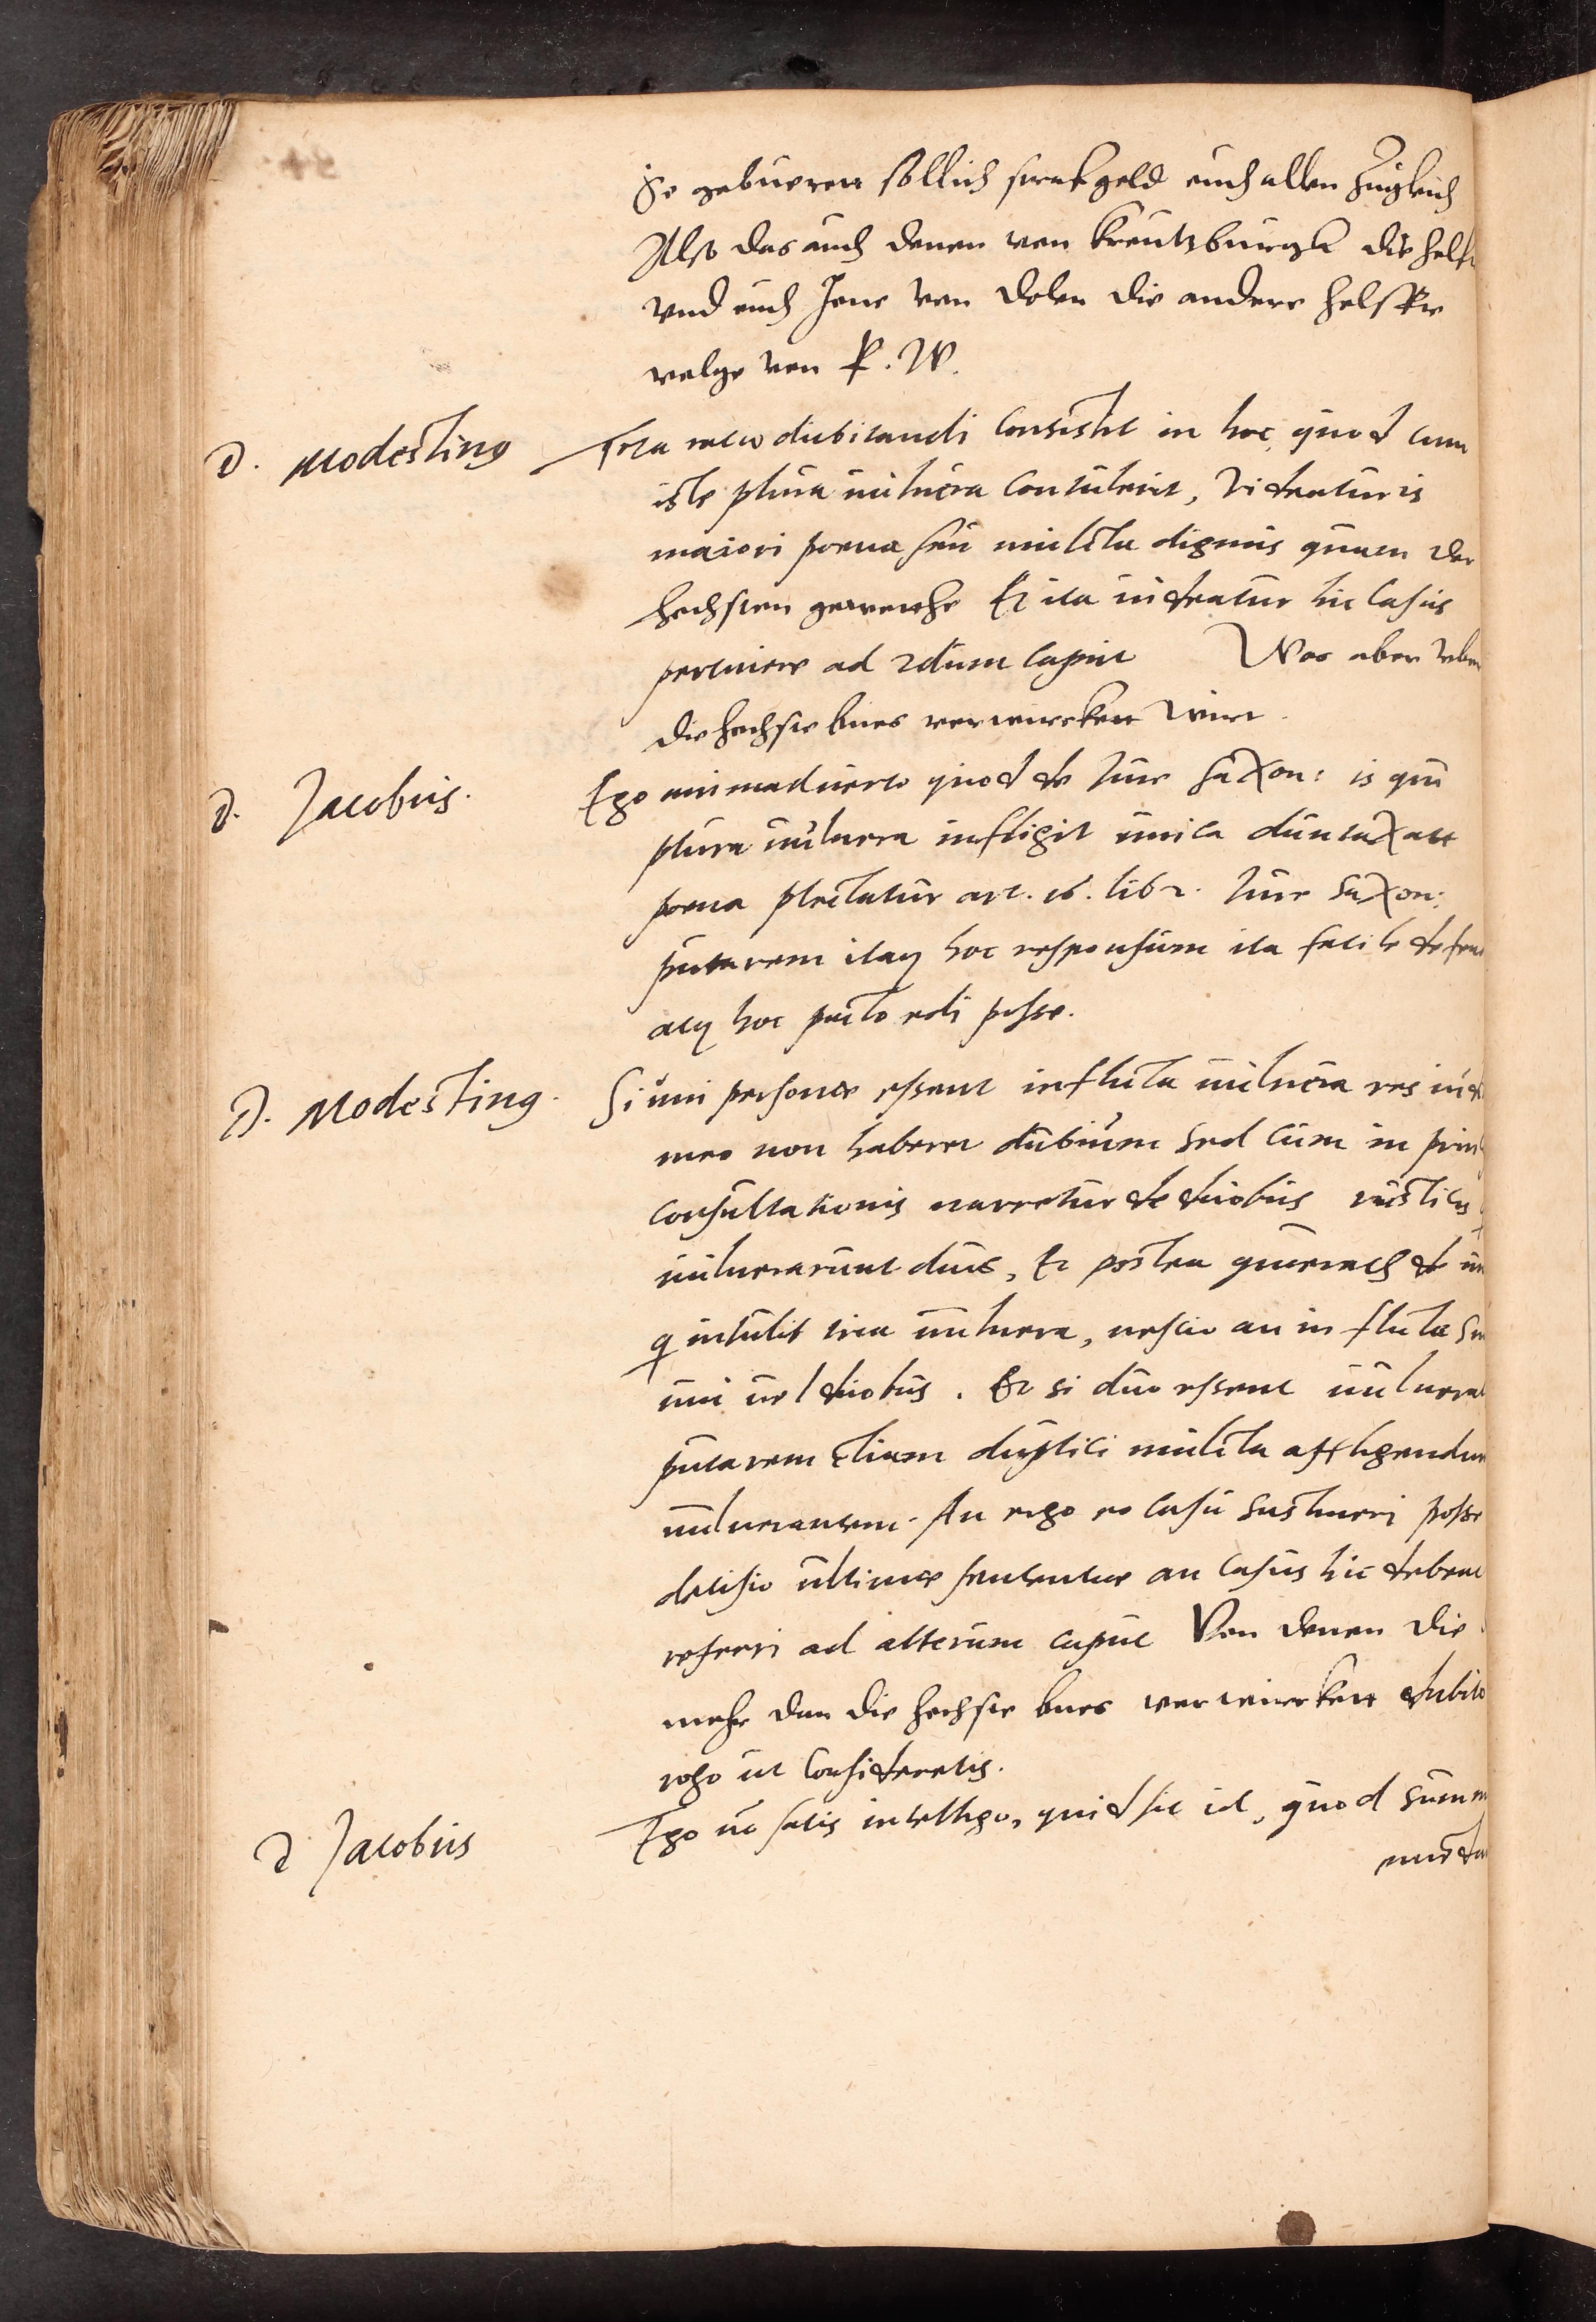 So gebueren sollich strafgeld euch allen zugleich
Also das auch denen von Kreutzburgk die helft
vnd euch Jene von Dolen die andere helffte
volge von R. W.
D. Modestinus
Tota ratio dubitandi consistit in hoc, quod cum
iste plura uulnera contulerit, Videatur is
maiori poena seu mulcta dignus quam der
hechsten gewerthe Et ita uideatur hic casus
pertinere ad 2dum caput Was aber vber
die hechste bues verwurcktt wirt.
D. Jacobus.
Ego animaduerto quod de Jure Saxon: is qui
plura uulnera infligit unica duntaxatt
poena plectatur art. 16. lib 2. Jure Saxon:
putarem itaq hoc responsum ita facile defen
atq hoc pacto edi posse.
D. Modestinus.
Si uni personae essent inflicta uulnera res iud
meo non haberet dubium sed cum in prin
consultationis narretur de duobus rusticis
uulnerarunt duos, Et postea quaerat de un
q intulit tria uulnera, nescio an inflicta sin
uni uel duobus. Et si duo essent uulnerat
putarem etiam duplici mulcta affligendum
uulnerantem. An ergo eo casu sustineri posse
decisio ultimae sententiae an casus hic debeat
referri ad alterum caput Von denen die
mehr dan die hechste bues verwircktt dubito
rogo ut consideretis.
D Jacobus
Ego no satis intelligo, quid sit id, quod summ